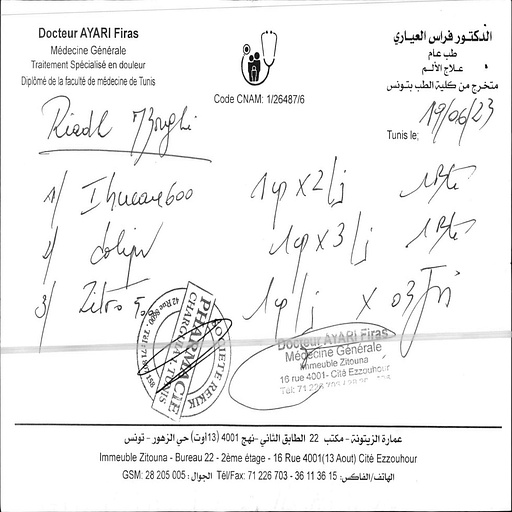 Docteur AYARI Firas
Médecine Générale
Traitement Spécialisé en douleur
Diplômé de la faculté de médecine de Tunis
الدكتور فراس العياري
طب عام
علاج الألم
متخرج من كلية الطب بتونس
Code CNAM: 1/26487/6
Tunis le; 19/06/23
Riadh
1/ 600 1cp x 2/j 1 Bte
2/ 1cp x 3/j 1 Bte
3/ Zitro 500 1cp/j x 03
PHARMACIE
TUNIS
Docteur AYARI Firas
Médecine Générale
Immeuble Zitouna
16 rue 4001- Cité Ezzouhour
عمارة الزيتونة - مكتب 22 الطابق الثاني -نهج 4001 (13أوت) حي الزهور - تونس
Immeuble Zitouna - Bureau 22 - 2ème étage - 16 Rue 4001(13 Aout) Cité Ezzouhour
GSM: 28 205 005 :الجوال Tél/Fax: 71 226 703 - 36 11 36 15 :الهاتف/الفاكس